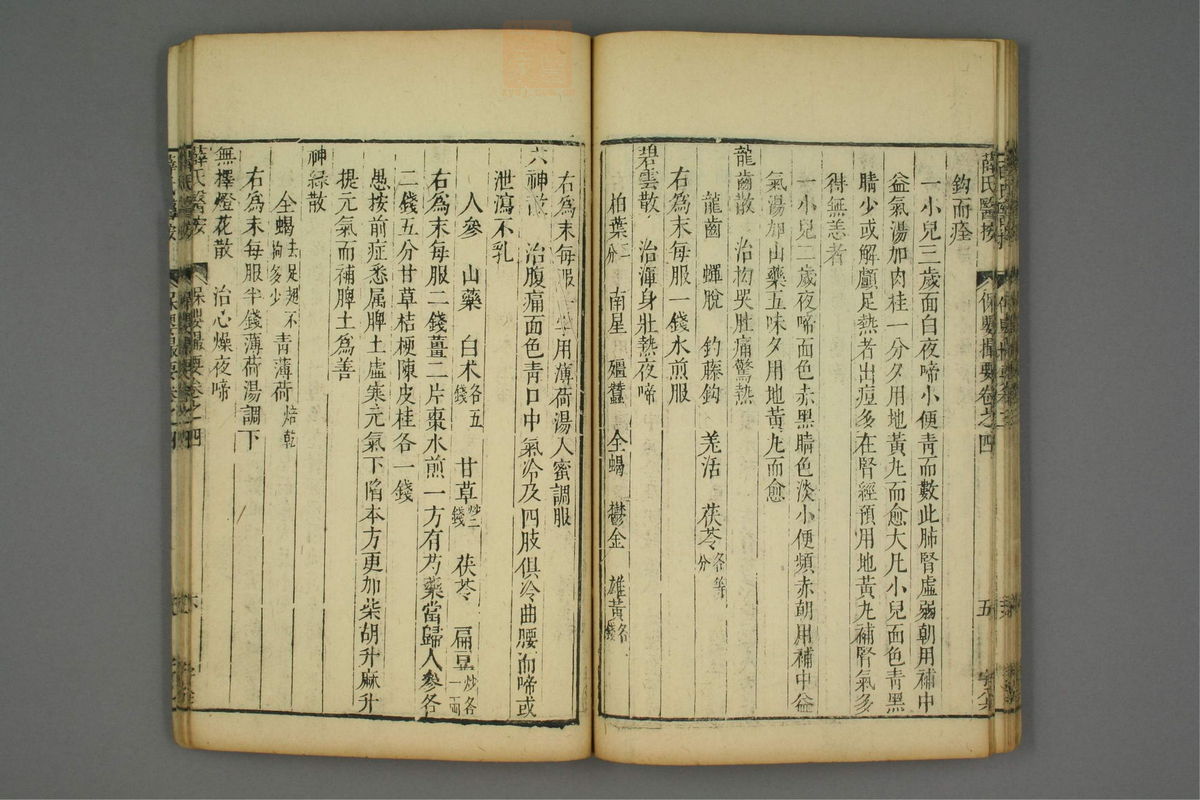 薛氏醫按 保嬰撮要卷之四 五
鈎而痊
一小兒三歲面白夜啼小便青而數此肺腎虛弱朝用補中
益氣湯加肉桂一分夕用地黃九而愈大凡小兒面色青黑
睛少或解顱足熱者出痘多在腎經預用地黃九補腎氣多
得無恙者
一小兒二歲夜啼面色赤黑睛色淡小便頻赤朝用補中益
氣湯加山藥五味夕用地黃九而愈
龍齒散 治拘哭肚痛驚熱
龍齒 蟬脫 鈎藤鈎 羌活 茯苓各等分
右為末每服一錢水煎服
碧雲散 治渾身壯熱夜啼
柏葉二分 南星 殭蠶 全蝎 鬱金 雄黃各一錢
右為末每服一字用薄荷湯入蜜調服
六神散 治腹痛面色青口中氣冷及四肢俱冷曲腰而啼或
泄瀉不乳
人參 山藥 白朮各五錢 甘草炒二錢 茯苓 扁豆炒各一兩
右為末每服二錢薑二片棗水煎一方有芍藥當歸人參各
二錢五分甘草桔梗陳皮桂各一錢
愚按前症悉属脾土虛寒元氣下陷本方更加柴胡升麻升
提元氣而補脾土為善
神綠散
全蝎去足翅不拘多少 青薄荷焙乾
右為末每服半錢薄荷湯調下
無擇燈花散 治心燥夜啼
薛氏醫按 保嬰撮要卷之四